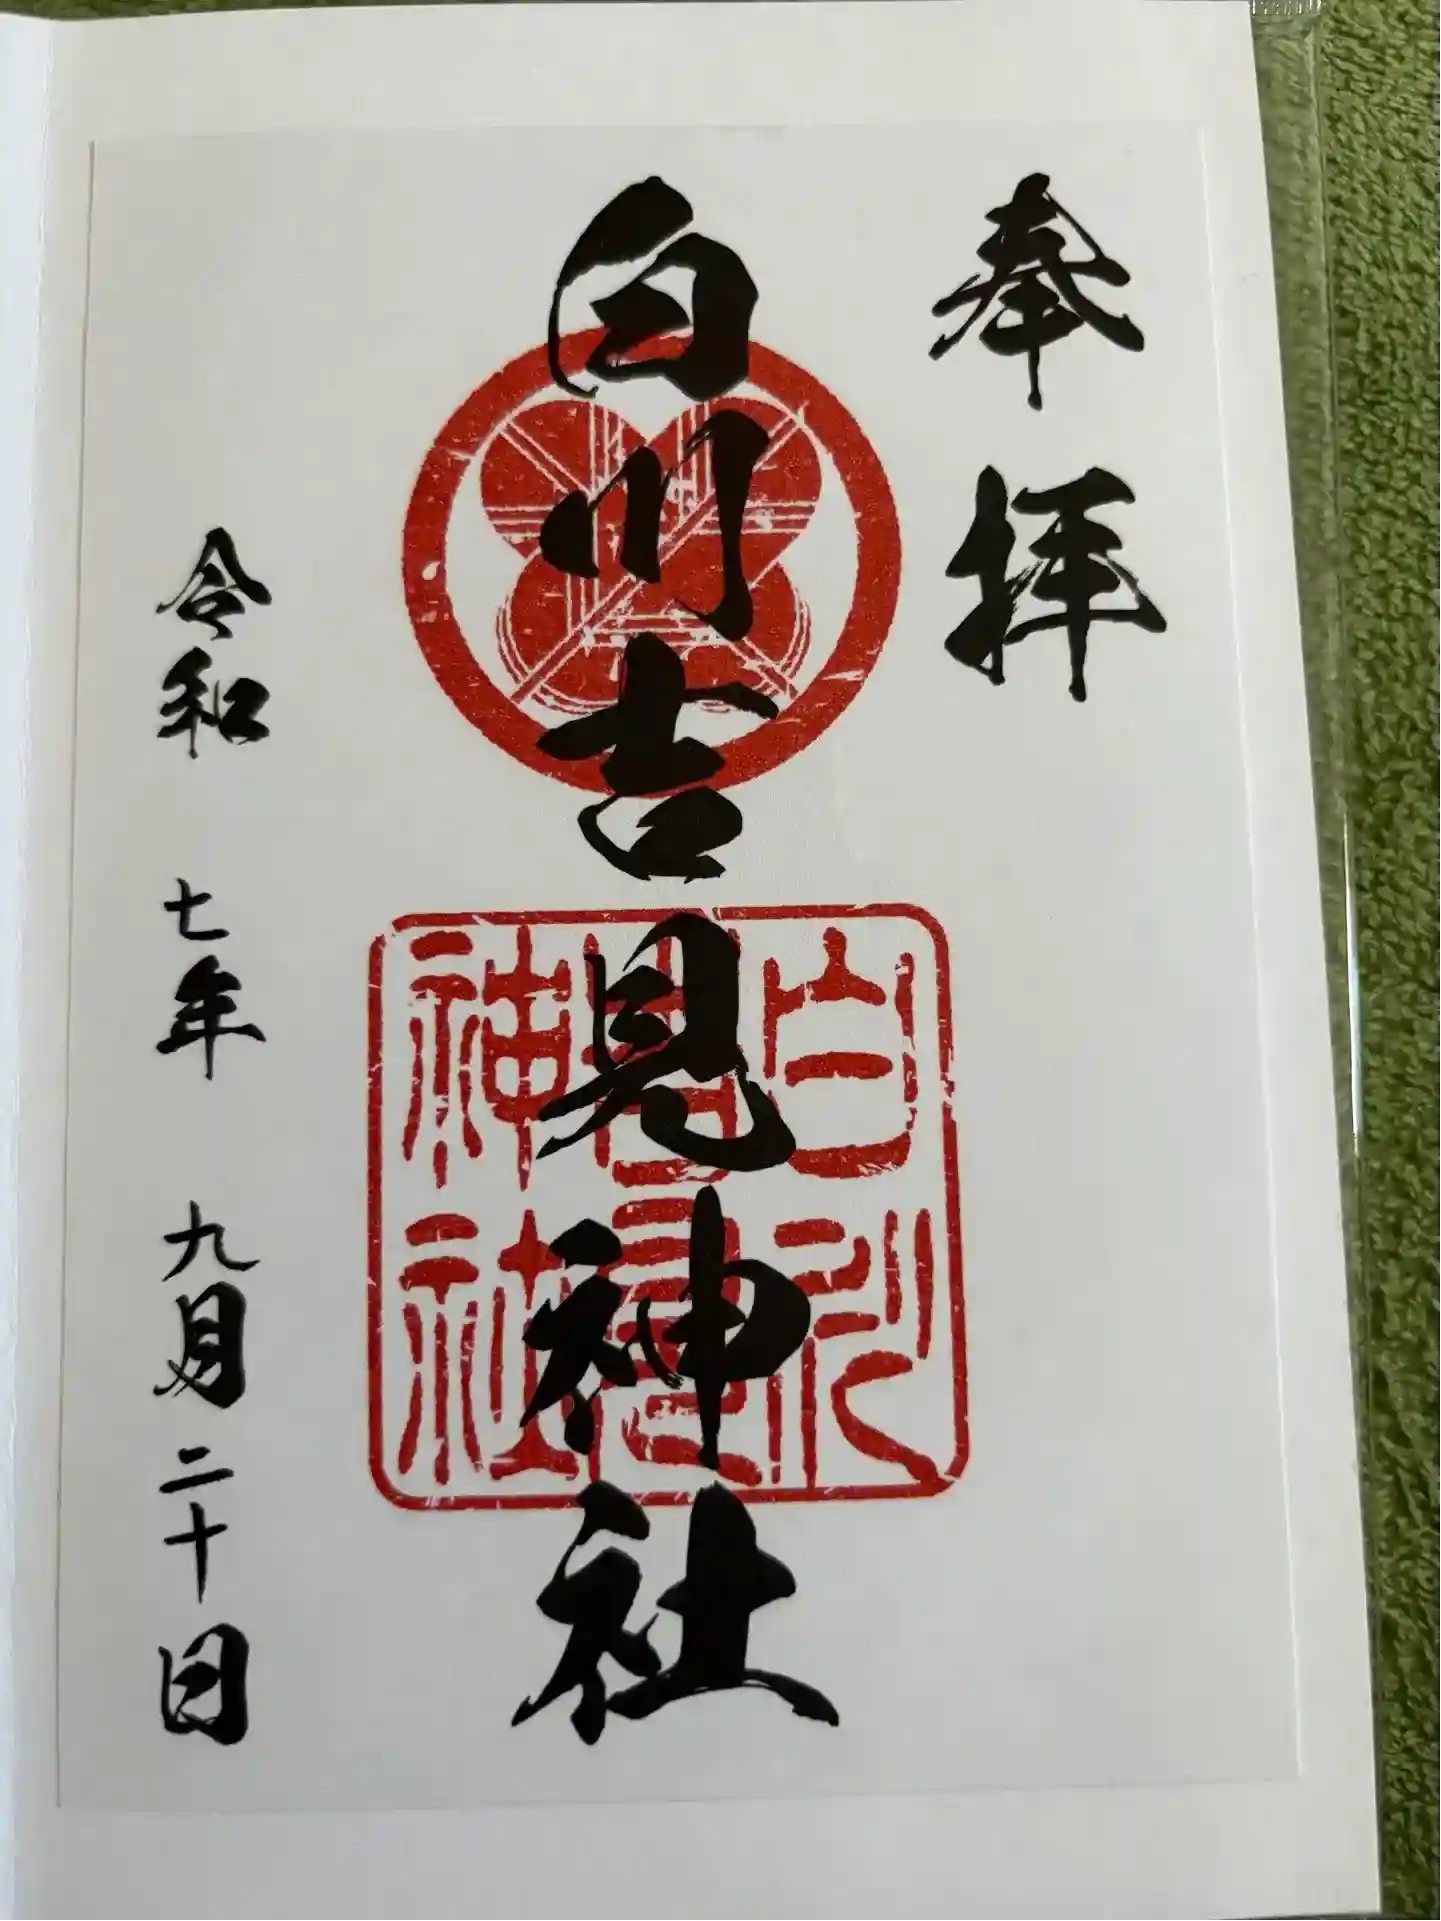 奉拝
白川吉見神社
白川
吉見
神社
令和 七年 九月 二十日